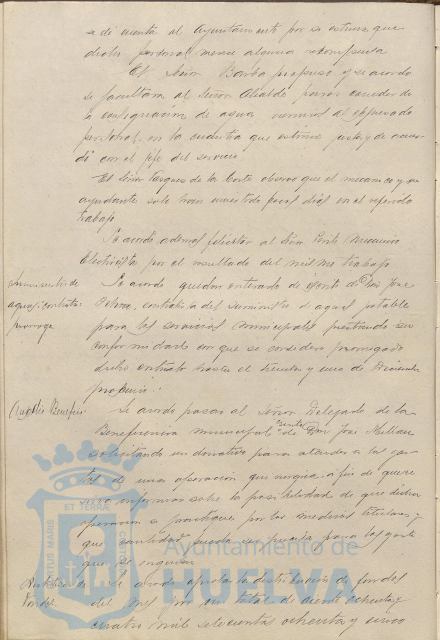 se dé cuenta al Ayuntamiento por si estima que
dicho personal merece alguna recompensa
El Señor Barba propuso y se acordó
se facultara al Señor Alcalde para conceder de
la consignación de agua, al expresado
personal, en la cuantía que estime justa y de acuer
do con el jefe del servicio
El Señor Vazquez de la Corte observó que el mecánico y su
ayudante solo han invertido pocos días en el referido
trabajo
Se acordó además felicitar al Señor
Electricista por el resultado del mismo trabajo
Suministro de
aguas: contrata:
prorroga
Se acordó quedar enterado de escrito de Don José
contratista del suministro de agua potable
para los servicios municipales prestando su
conformidad con que se considere prorrogado
dicho contrato hasta el treinta y uno de Diciembre
próximo.
Auxilio Benefico:
Se acordó pasar al Señor Delegado de la
Beneficencia municipal escrito de Don José
solicitando un donativo para atender a los gas
tos de una operación que a fin de que se
sirva informar sobre la posibilidad de que dicha
operación se practique por los médicos titulares y
que cantidad puede ser precisa para los gastos
que se
Distribución
fondos
se acordó aprobar la distribución de fondos
del mes por un total de ciento ochenta y
cuatro mil setecientas ochenta y cinco
PORTUS MARIS
ET TERRAE
CUSTODIA
Ayuntamiento de
HUELVA